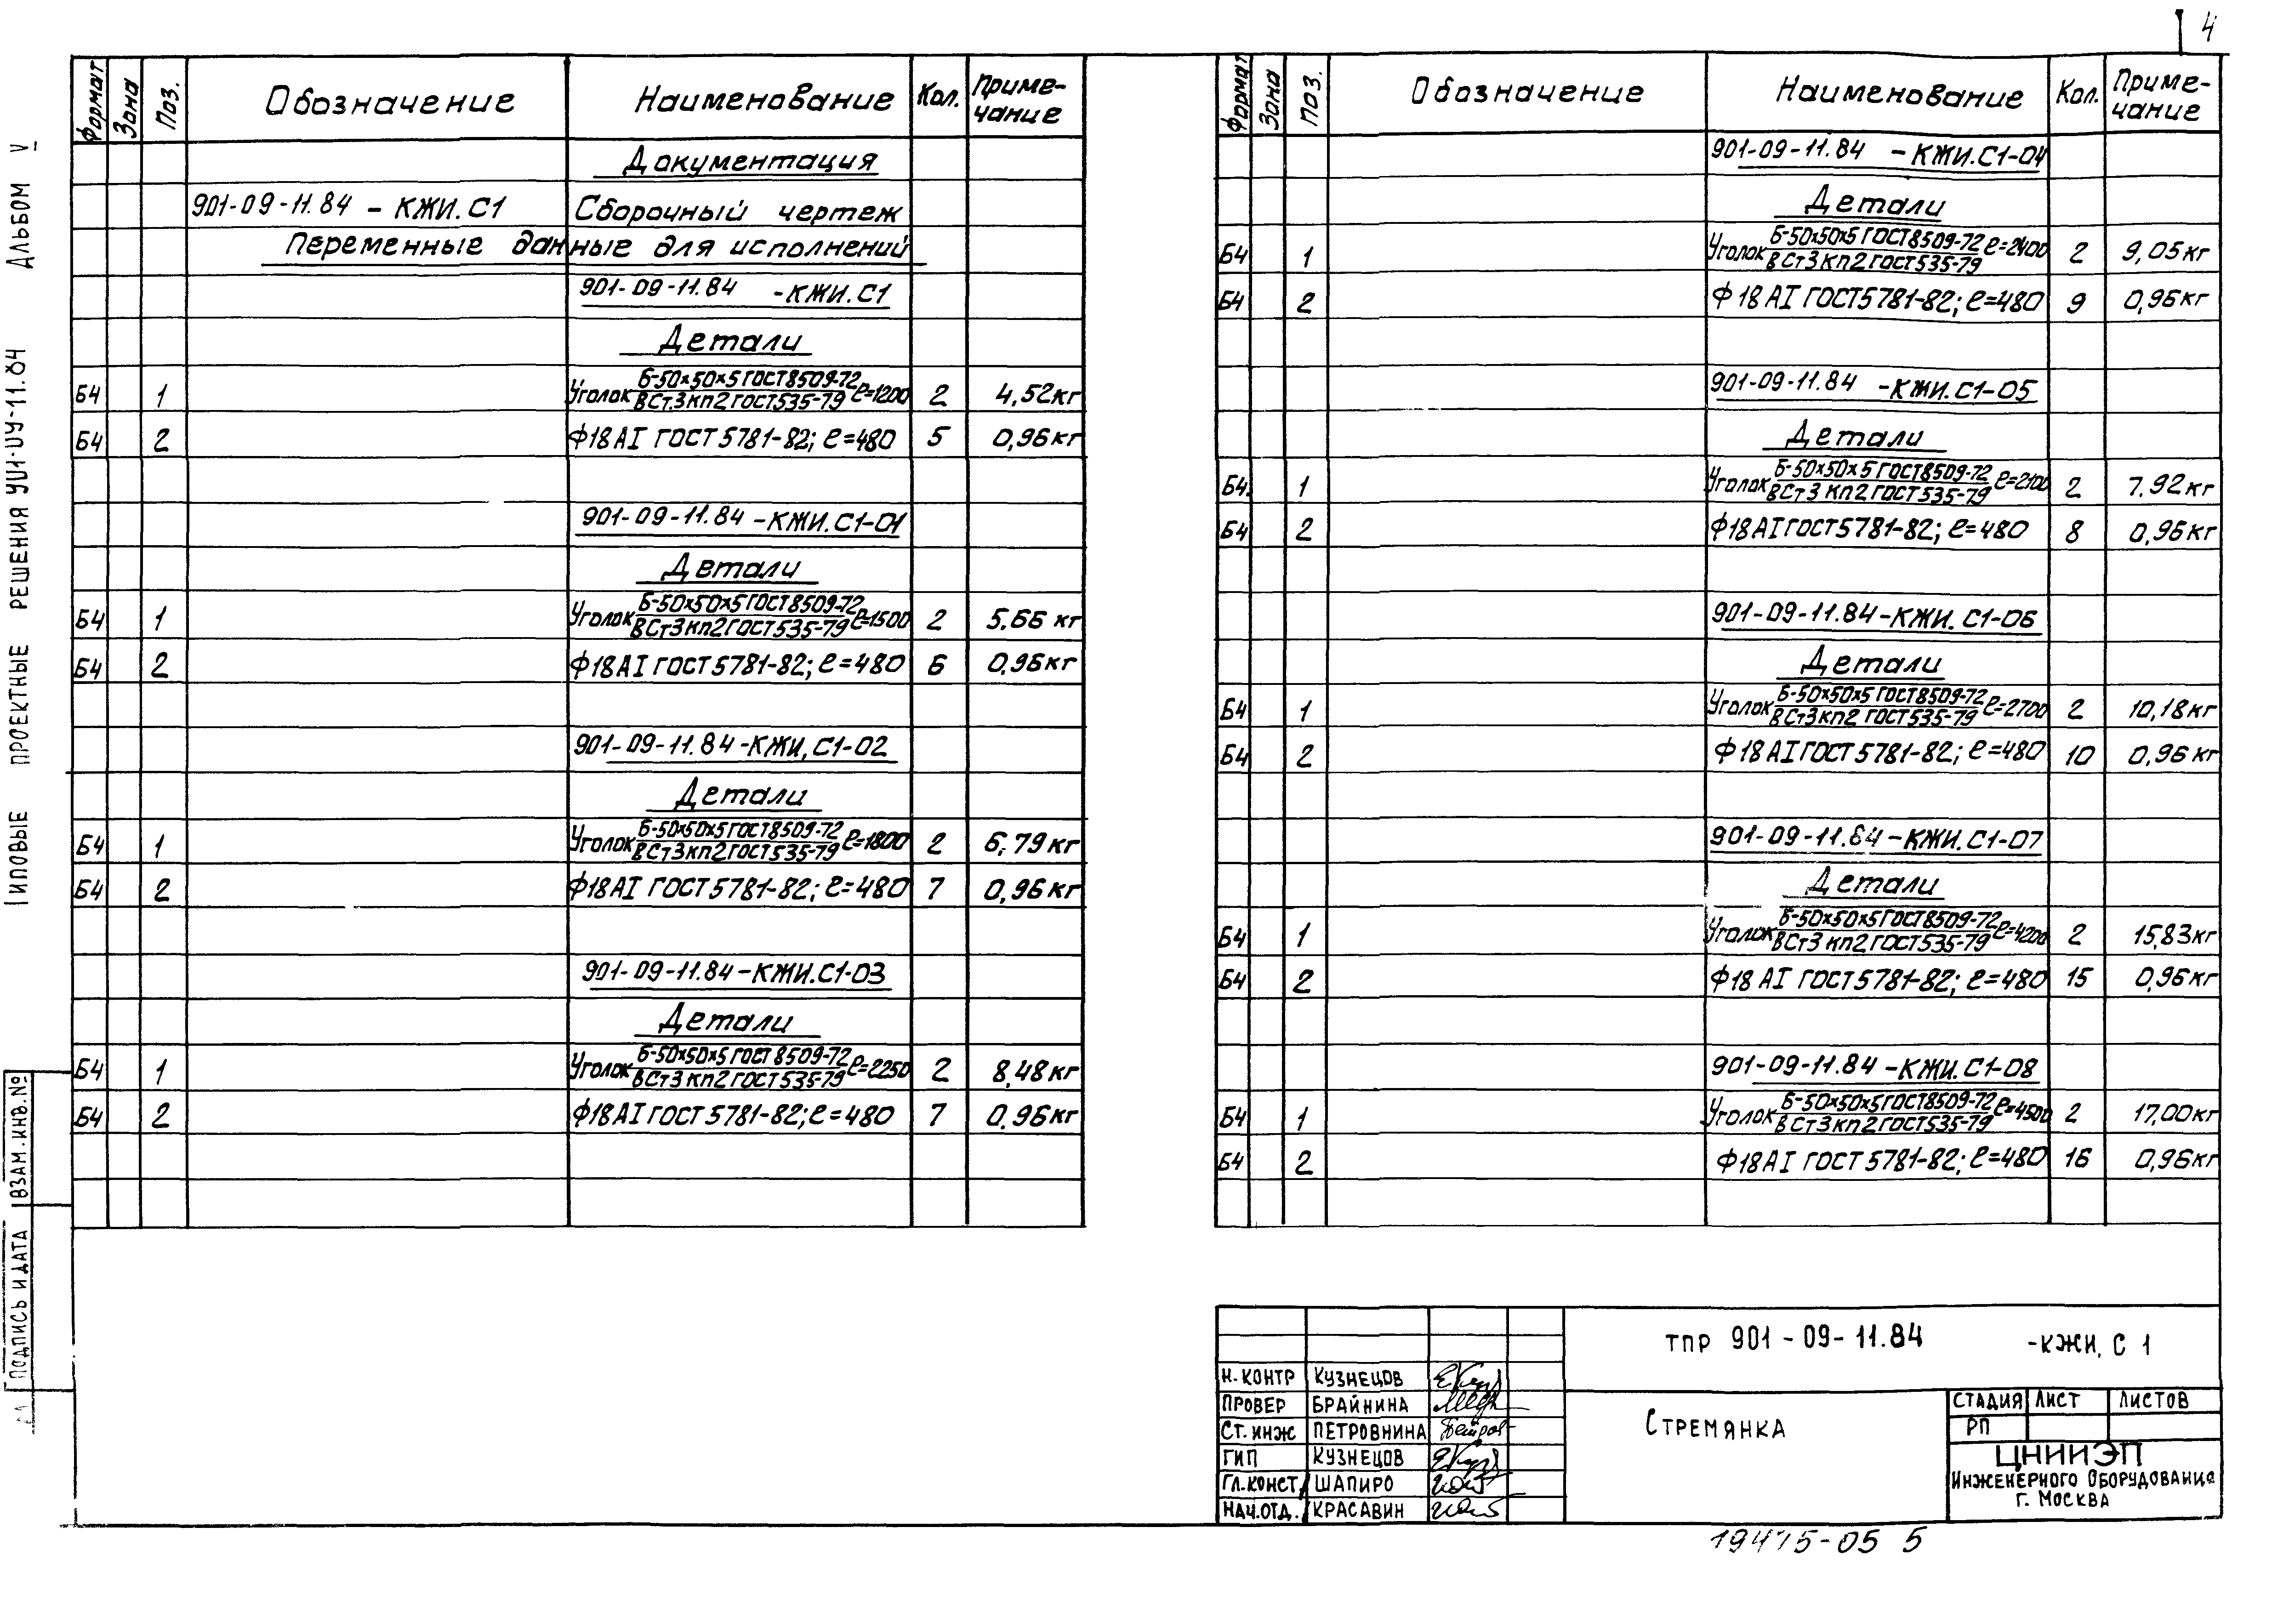 4
Формат Зона Поз. Обозначение Наименование Кол. Приме-чание
Документация
901-09-11.84 - КЖИ.С1 Сборочный чертеж
Переменные данные для исполнений
901-09-11.84 -КЖИ.С1
Детали
Б4 1 Уголок Б-50х50х5 ГОСТ 8509-72 / ВСт.3кп2 ГОСТ 535-79 ℓ=1200 2 4,52кг
Б4 2 Ф18АI ГОСТ 5781-82; ℓ=480 5 0,96кг
901-09-11.84 -КЖИ.С1-01
Детали
Б4 1 Уголок Б-50х50х5 ГОСТ 8509-72 / ВСт3кп2 ГОСТ 535-79 ℓ=1500 2 5.66 кг
Б4 2 Ф18АI ГОСТ 5781-82; ℓ=480 6 0.96кг
901-09-11.84-КЖИ,С1-02
Детали
Б4 1 Уголок Б-50х50х5 ГОСТ 8509-72 / ВСт3кп2 ГОСТ 535-79 ℓ=1800 2 6,79кг
Б4 2 Ф18АI ГОСТ 5781-82; ℓ=480 7 0,96кг
901-09-11.84-КЖИ.С1-03
Детали
Б4 1 Уголок Б-50х50х5 ГОСТ 8509-72 / ВСт3 кп2 ГОСТ 535-79 ℓ=2250 2 8,48кг
Б4 2 Ф18АI ГОСТ 5781-82; ℓ=480 7 0.96кг
Формат Зона Поз. Обозначение Наименование Кол. Приме-чание
901-09-11.84 -КЖИ.С1-04
Детали
Б4 1 Уголок Б-50х50х5 ГОСТ 8509-72 / ВСт3кп2 ГОСТ 535-79 ℓ=2400 2 9,05кг
Б4 2 Ф18АI ГОСТ 5781-82; ℓ=480 9 0,96кг
901-09-11.84 -КЖИ.С1-05
Детали
Б4. 1 Уголок Б-50х50х5 ГОСТ 8509-72 / ВСт3 кп2 ГОСТ 535-79 ℓ=2100 2 7.92кг
Б4 2 Ф18АI ГОСТ 5781-82; ℓ=480 8 0,96кг
901-09-11.84-КЖИ. С1-06
Детали
Б4 1 Уголок Б-50х50х5 ГОСТ 8509-72 / ВСт3кп2 ГОСТ 535-79 ℓ=2700 2 10,18кг
Б4 2 Ф18АI ГОСТ 5781-82; ℓ=480 10 0,96 кг
901-09-11.84-КЖИ.С1-07
Детали
Б4 1 Уголок Б-50х50х5 ГОСТ 8509-72 / ВСт3 кп2 ГОСТ 535-79 ℓ=4200 2 15,83кг
Б4 2 Ф18АI ГОСТ 5781-82; ℓ=480 15 0,96кг
901-09-11.84 -КЖИ.С1-08
Б4 1 Уголок Б-50х50х5 ГОСТ 8509-72 / ВСт3кп2 ГОСТ 535-79 ℓ=4500 2 17,00кг
Б4 2 Ф18АI ГОСТ 5781-82; ℓ=480 16 0,96кг
ТИПОВЫЕ ПРОЕКТНЫЕ РЕШЕНИЯ 901-09-11.84 АЛЬБОМ V
ВЗАМ.ИНВ.№
ПОДПИСЬ И ДАТА
ТПР 901-09-11.84 -КЖИ, С 1
Н.КОНТР КУЗНЕЦОВ
ПРОВЕР БРАЙНИНА
СТ.ИНЖ ПЕТРОВНИНА
ГИП КУЗНЕЦОВ
ГЛ.КОНСТ. ШАПИРО
НАЧ.ОТД. КРАСАВИН
СТРЕМЯНКА
СТАДИЯ ЛИСТ ЛИСТОВ
РП
ЦНИИЭП
ИНЖЕНЕРНОГО ОБОРУДОВАНИЯ
Г. МОСКВА
19475-05 5